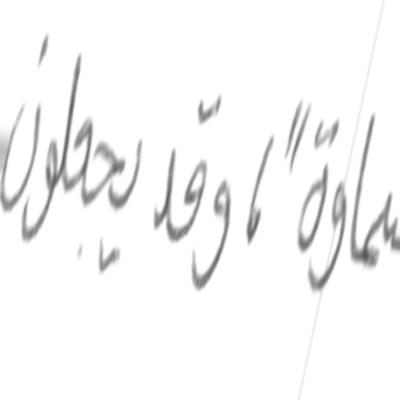 سماوة" ، وقد يجعلون